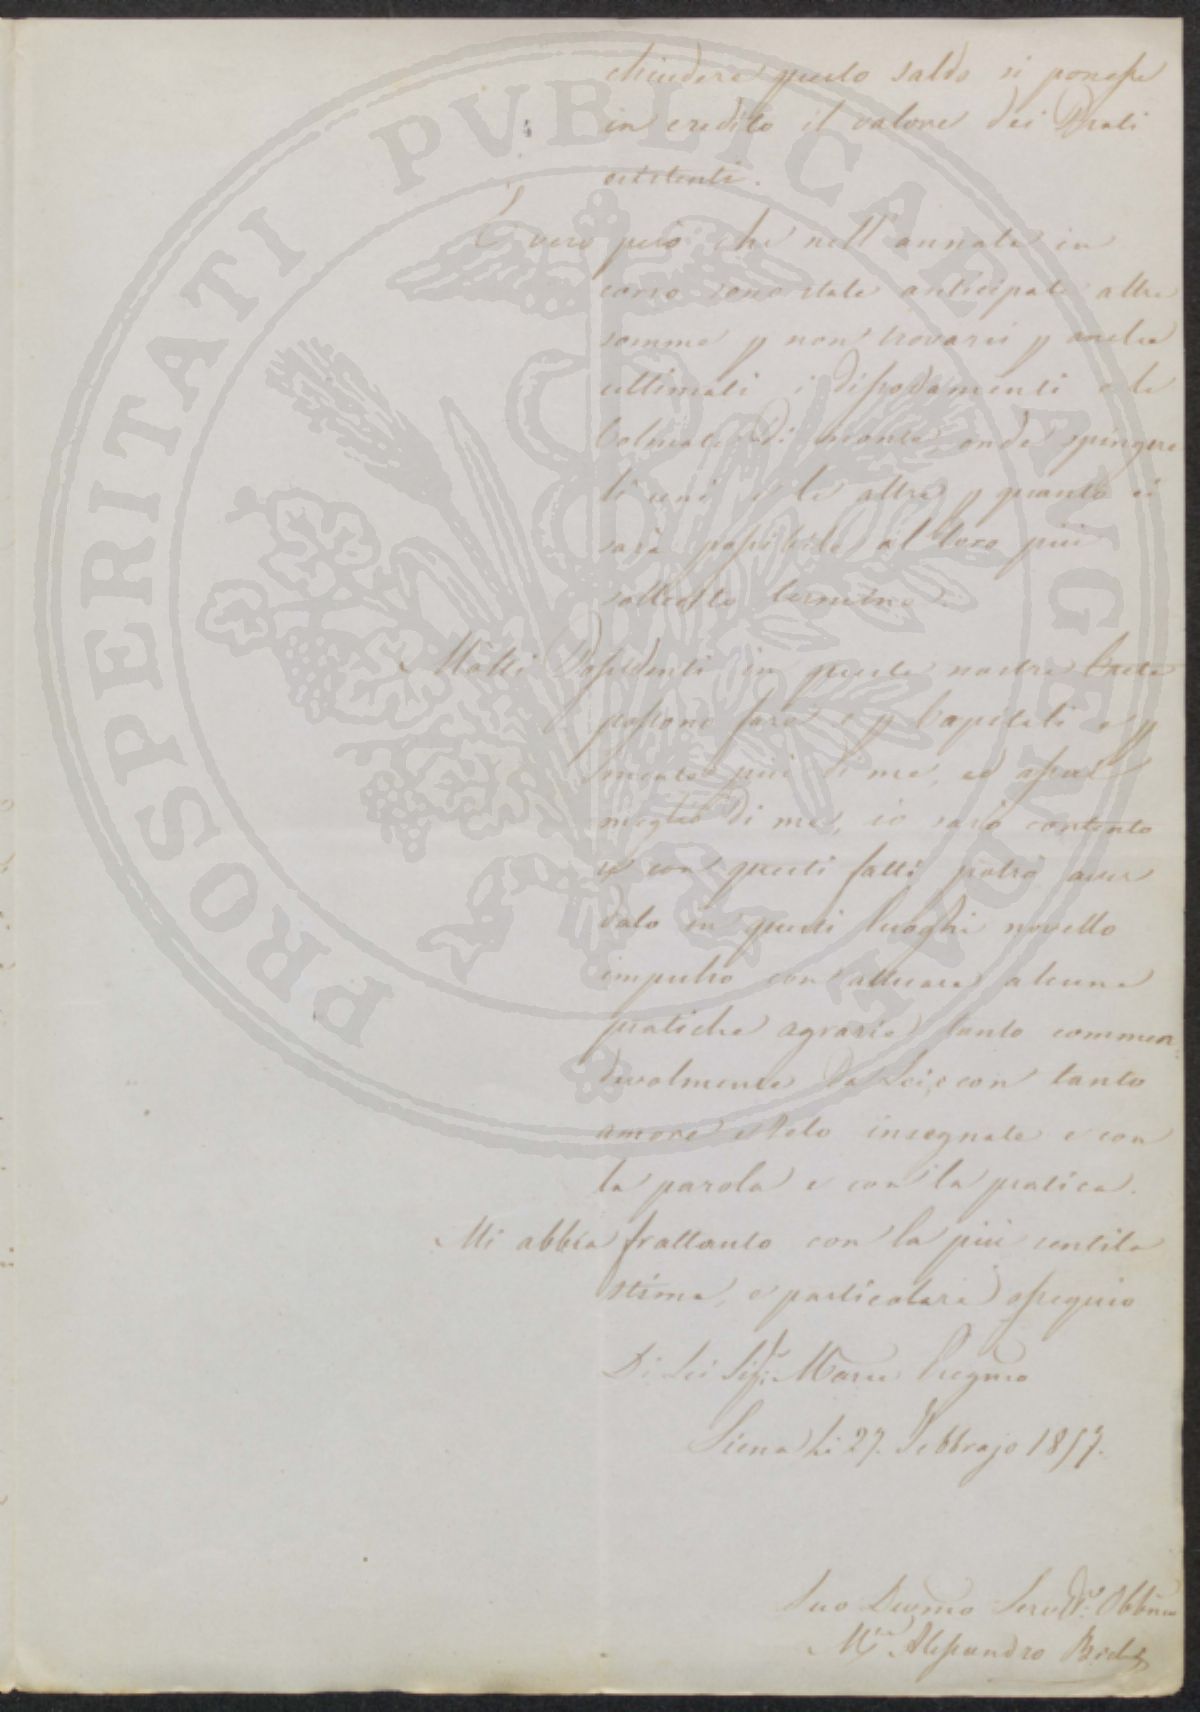 chiudere questo saldo si ponesse
in credito il valore dei Prati
esistenti.
È vero però che nell'annata in
corso sono state anticipate altre
somme p non trovarsi p anche
ultimati i dissodamenti e le
Colmate di monte, onde spingere
li uni e le altre p quanto ci
sarà possibile al loro più
sollecito termine.
Molti Possidenti in queste nostre Crete
possono fare e p Capitali e p
mente più di me, ed assai
meglio di me, io sarò contento
se con questi fatti potrò aver
dato in questi luoghi novello
impulso con attivare alcune
pratiche agrarie tanto commen
devolmente da Lei, e con tanto
amore e zelo insegnate e con
la parola e con la pratica.
Mi abbia frattanto con la più sentita
stima, e particolare ossequio
Di Lei Sigr. Marce Pregmo
Siena Li 27. Febbrajo 1857.
Suo Devmo Servre Obbmo
Alessandro
PROSPERITATI PVBLICAE AVGENDAE